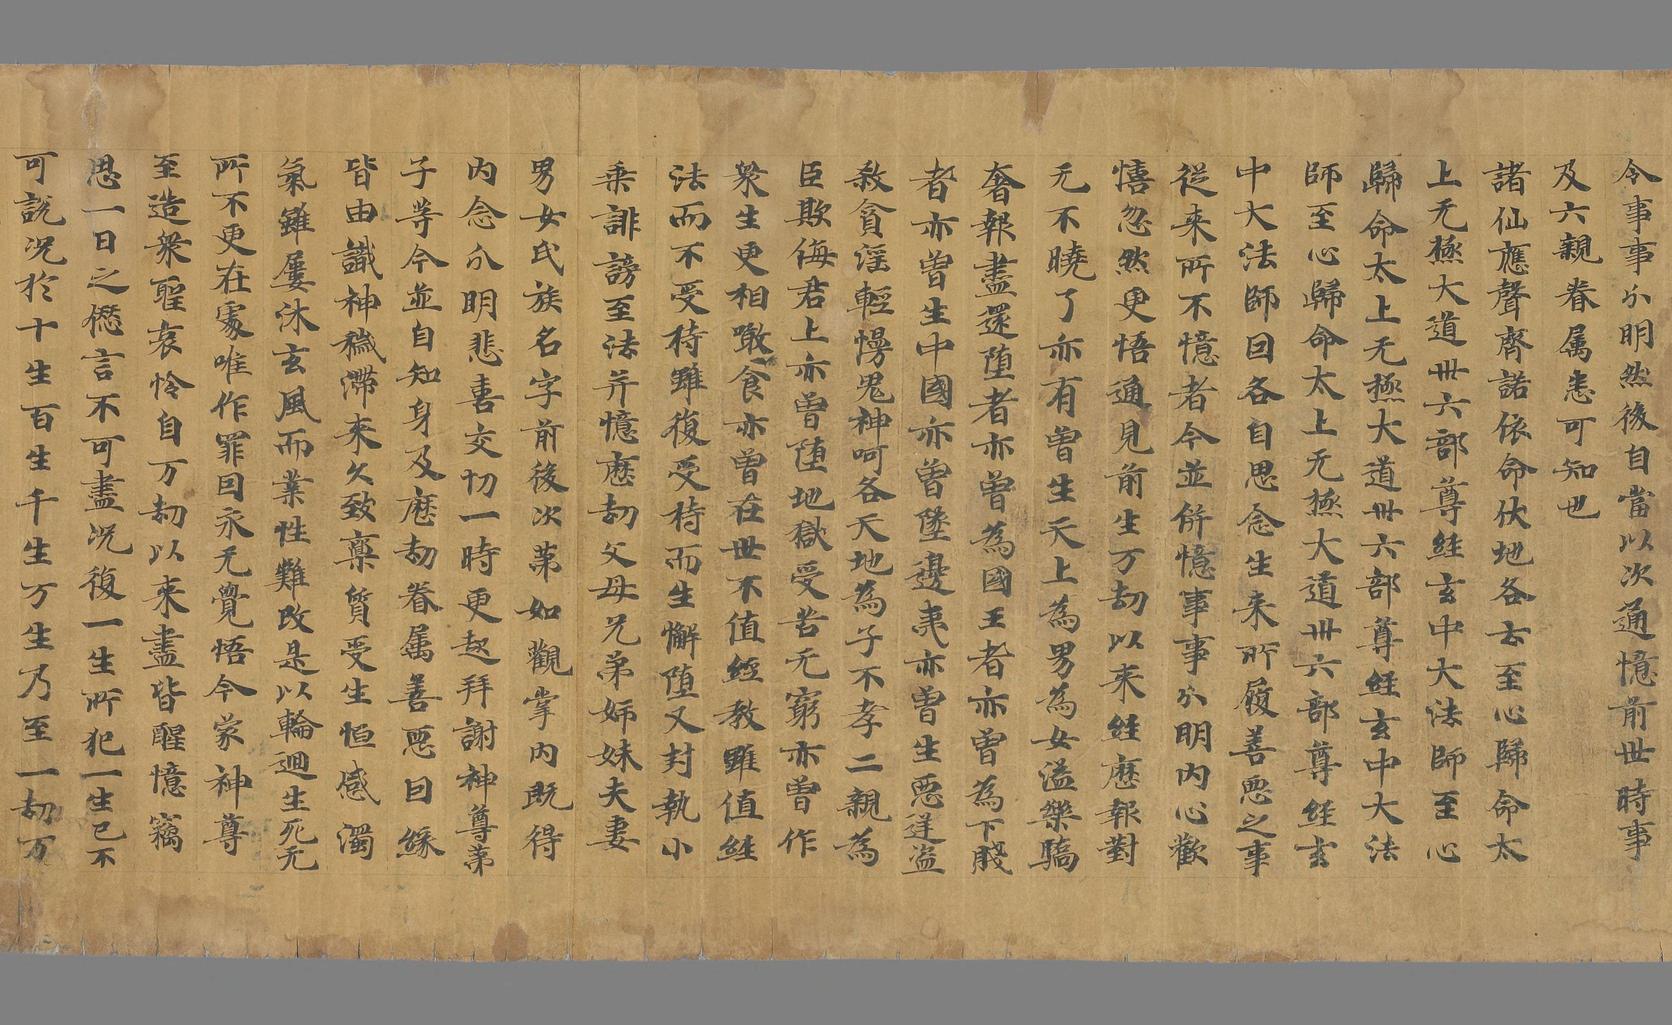 令事事分明然後自當以次通憶前世時事
及六親眷属悉可知也
諸仙應聲齊諾依命伏地各云至心歸命太
上无極大道卅六部尊経玄中大法師至心
歸命太上无極大道卅六部尊経玄中大法
師至心歸命太上无極大道卅六部尊経玄
中大法師回各自思念生来所履善悪之事
従来所不憶者今並倂憶事事分明内心歡
憘忽然更悟通見前生万劫以来経歷報對
无不曉了亦有曽生天上為男為女溢樂驕
奢報盡還堕者亦曽為國王者亦曽為下賤
者亦曽生中國亦曽墜邊夷亦曽生悪逆盗
煞貪滛輕慢鬼神呵各天地為子不孝二親為
臣欺侮君上亦曽堕地獄受苦无窮亦曽作
衆生更相噉食亦曽在世不值経教雖值経
法而不受持雖復受持而生懈堕又封執小
乗誹謗至法并憶歷劫父母兄弟姉妹夫妻
男女氏族名字前後次第如觀掌内既得
内念分明悲喜交切一時更起拜謝神尊弟
子等今並自知身及歷劫眷属善悪回緣
皆由識神穢滯来久致稟質受生恒感濁
氣雖屢沐玄風而業性難改是以輪迴生死无
所不更在處唯作罪回永无覺悟今蒙神尊
至造衆聖哀怜自万劫以来盡皆醒憶竊
思一日之𠎝言不可盡况復一生所犯一生已不
可説况於十生百生千生万生乃至一劫万